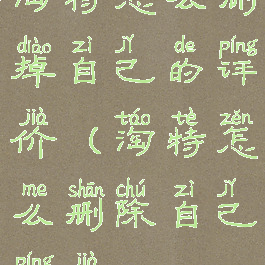 淘特怎么删
diào zì jǐ de píng
掉自己的评
jià táo tè zěn
价(淘特怎
me shān chú zì jǐ
么删除自己
píng jià